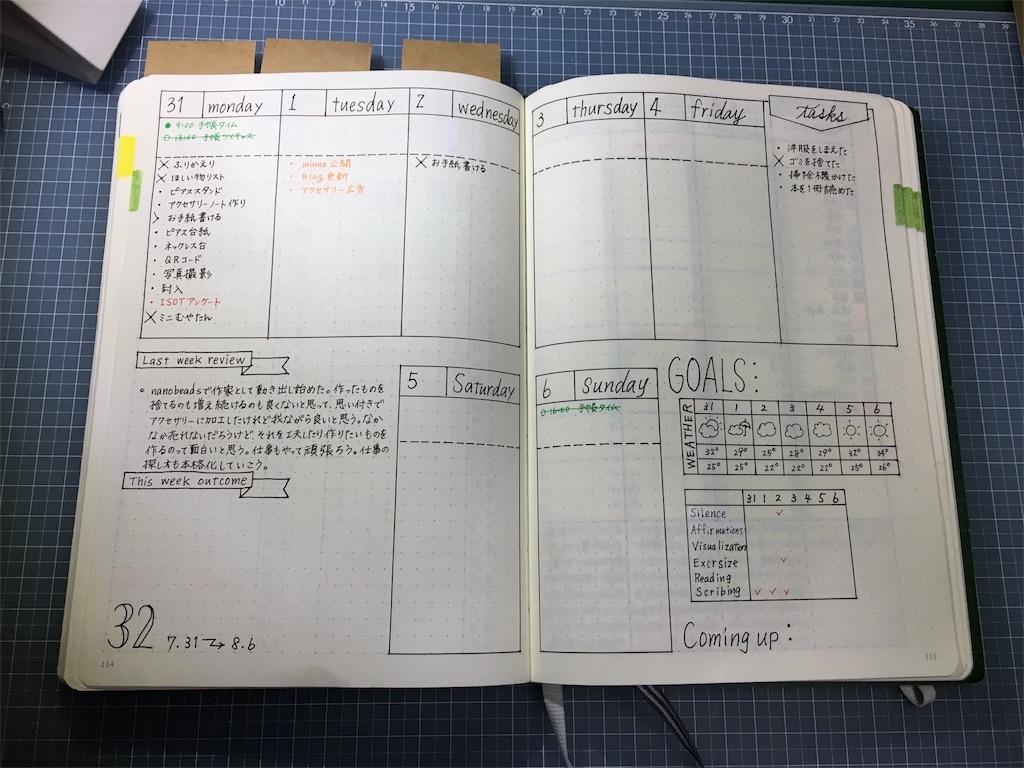 31 monday
● 9:00 手帳タイム
○ 13:00 手帳ツイキャス
× ふりかえり
× ほしい物リスト
・ ピアススタンド
・ アクセサリーノート作り
> お手紙書ける
・ ピアス台紙
・ ネックレス台
・ QRコード
・ 写真撮影
・ 封入
・ ISOTアンケート
× ミニむやたん
1 tuesday
・ minne公開
・ blog更新
・ アクセサリー広告
2 wednesday
× お手紙書ける
3 thursday
4 friday
tasks
・ 洋服をしまえた
× ゴミを捨てた
・ 掃除機かけた
・ 本を1冊読めた
Last week review
○ nanobeadsで作家として動き出し始めた。作ったものを
捨てるのも増え続けるのも良くないと思って、思い付きで
アクセサリーに加工したけれど我ながら良いと思う。なか
なか売れないだろうけど、それを工夫したり作りたいものを
作るのって面白いと思う。仕事もやって頑張ろう。仕事の
探し方も本格化していこう。
This week outcome
32 7.31→8.6
114
5 Saturday
6 Sunday
○ 16:00 手帳タイム
GOALS:
WEATHER
31 1 2 3 4 5 6
32° 29° 25° 28° 29° 32° 34°
25° 25° 22° 22° 22° 25° 26°
31 1 2 3 4 5 6
Silence ✓
Affirmations
Visualization
Excrsize ✓
Reading
Scribing ✓ ✓ ✓
Coming up:
115